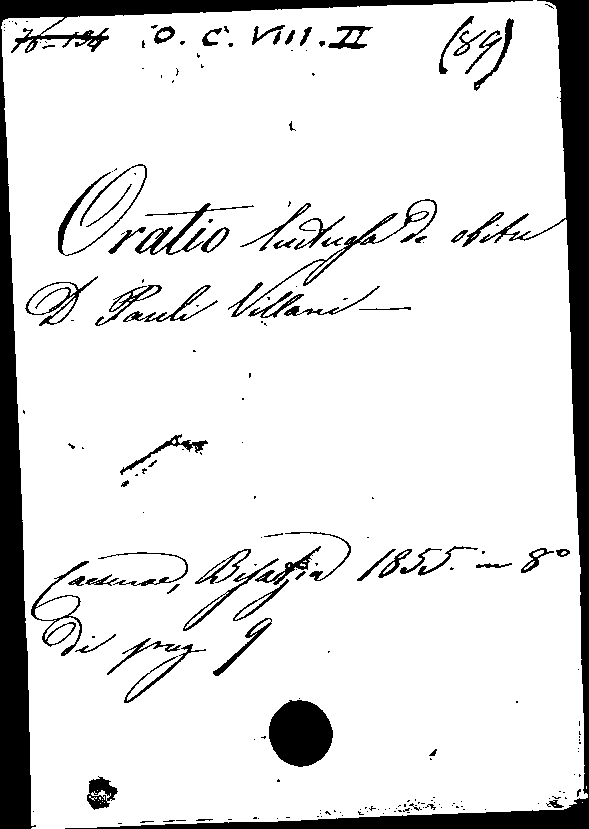 76-134 O. C. VIII. II (89)
Oratio de obitu
D. Pauli Villani —
Caesenae, Bisazia 1855. in 8°
di pag 9